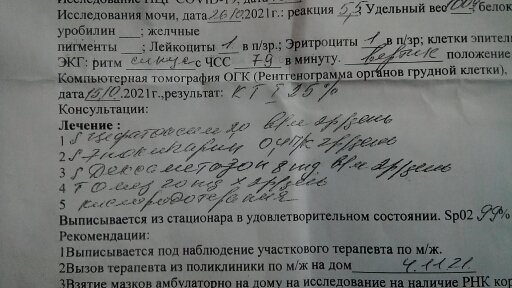 Исследования мочи, дата 26.10.2021г.: реакция 5,5; Удельный вес 100 белок
уробилин ___; желчные
пигменты ___; Лейкоциты 1 в п/зр.; Эритроциты 1 в п/зр; клетки эпители
ЭКГ: ритм синус с ЧСС 79 в минуту. вертик положение
Компьютерная томография ОГК (Рентгенограмма органов грудной клетки),
дата 15.10.2021г.,результат: КТ I 25%
Консультации:
Лечение :
1 S Цефотаксим 2,0 в/м 2р/день
2 S 0,4 п/к 2р/день
3 S Дексаметазон 8 mg в/м 2р/день
4 Т Омез 20 mg х 2р/день
5 кислородотерапия
Выписывается из стационара в удовлетворительном состоянии. Sp02 99%
Рекомендации:
1Выписывается под наблюдение участкового терапевта по м/ж.
2Вызов терапевта из поликлиники по м/ж на дом 4.11.21.
3Взятие мазков амбулаторно на дому на исследование на наличие РНК кор